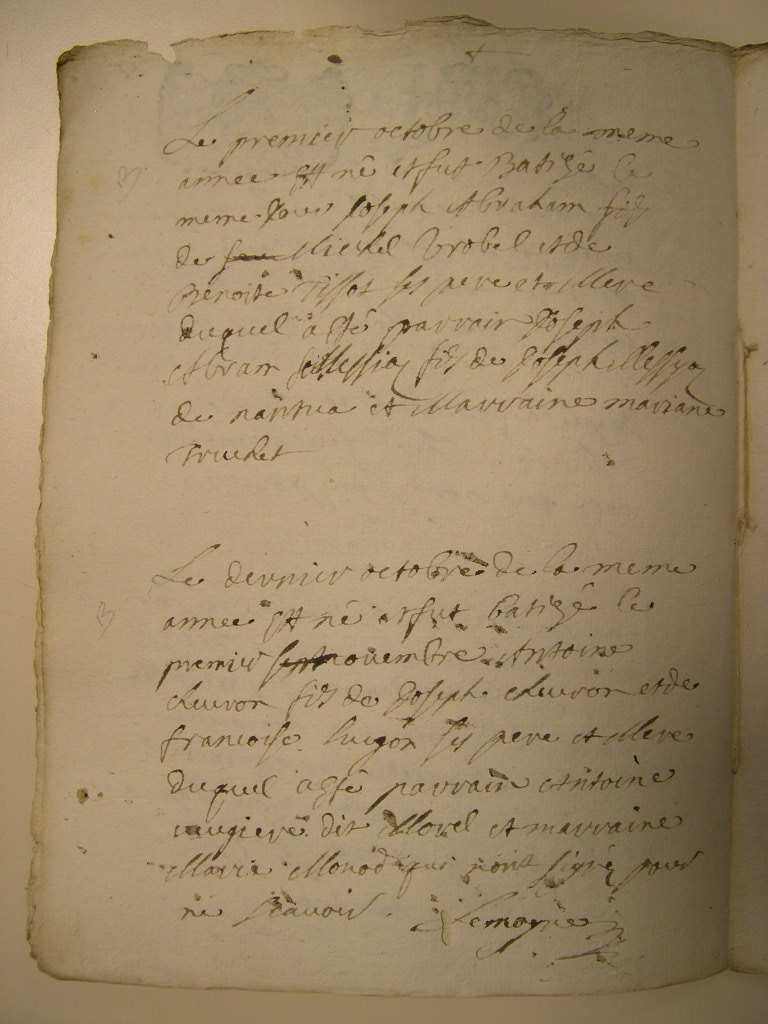 Le premier octobre de la meme
annee est né et fut Batizé le
meme Jour Joseph Abraham fils
de Michel Vrobel et de
Benoite Tissot ses pere et Mere
duquel a esté parrain Joseph
Abram Messiaz fils de Joseph Messiaz
de nantua et Marraine mariane
Truchet
Le dernier octobre de la meme
annee est né et fut batizé le
premier novembre Antoine
Chevron fils de Joseph Chevron et de
francoise ses pere et Mere
duquel a esté parrain Antoine
dit Morel et marraine
Marie Monod qui nont signé pour
ne scavoir. Lemoyne